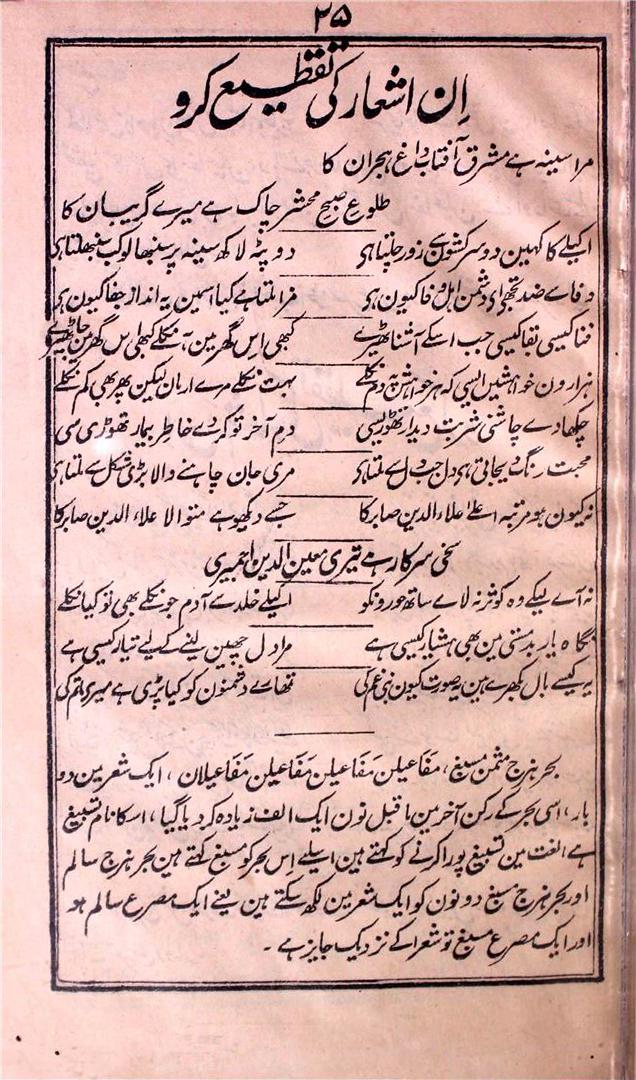 ۲۵
اِن اشعار کی تقطیع کرو
مرا سینہ ہے مشرق آفتاب داغ ہجران کا
طلوع صبح محشر چاک ہے میرے گریبان کا
اکیلے کا کہین دو سرکشون سے زور چلتا ہی دوپٹہ لاکھ سینہ پر سنبھالو کب سنبھلتا ہی
وفا سے ضد تجھی ای دشمن اہل وفا کیون ہی مزا ملتا ہے کیا اسمین یہ انداز جفا کیون ہی
فنا کیسی بقا کیسی جب اسکے آشنا ٹھیرے کبھی اس گھر مین آنکلے کبھی اس گھر مین جا ٹھیرے
ہزارون خواہشین ایسی کہ ہر خواہش پہ دم نکلے بہت نکلے مرے ارمان لیکن پھر بھی کم نکلے
چکھادے چاشنی شربت دیدار تھوڑی سی دم آخر تو کردے خاطر بیمار تھوڑی سی
محبت رنگ دیجاتی ہی دل جب دل سے ملتا ہی مری جان چاہنے والا بڑی مشکل سے ملتا ہی
نہ کیون ہو مرتبہ اعلے علاء الدین صابر کا جسے دیکھو ہے متوالا علاء الدین صابر کا
سخی سرکار ہے تیری معین الدین اجمیری
نہ آے لیکے وہ کوثر نہ لاے ساتھ حورونکو اکیلے خلد سے آدم جو نکلے بھی تو کیا نکلے
نگاہ یار بدمستی مین بھی ہشیار کیسی ہے مرا دل چھین لینے کے لیے تیار کیسی ہے
یہ کیسے بال بکھرے ہین یہ صورت کیون بنی غم کی تمھارے دشمنون کو کیا پڑی ہے میرے ماتم کی
بحر ہزج مثمن مسبغ، مَفاعیلن مَفاعیلن مَفاعیلن مَفاعیلان، ایک شعر مین دو
بار، اسی بحر کے رکن آخر مین ماقبل نون ایک الف زیادہ کر دیا گیا، اسکا نام تسبیغ
ہے لغت مین تسبیغ پورا کرنے کو کہتے ہین اسلیے اِس بحر کو مسبغ کہتے ہین بحر ہزج سالم
اور بحر ہزج مسبغ دونون کو ایک شعر مین لکھ سکتے ہین یعنے ایک مصرع سالم ہو
اور ایک مصرع مسبغ تو شعرا کے نزدیک جایز ہے ۔